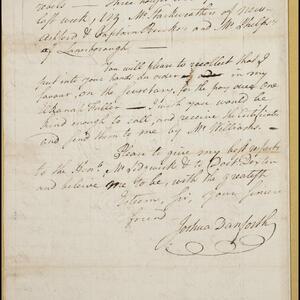 roads — Three houses were
last week, by Mr. Starkweather of New-
Ashford & Captain Brooks and Mr. Phelps
of Lanesborough. —
You will please to recollect that I
put into your hands an order in my
favour, on the Secretary, for the pay over one
Elkanah Fuller — I wish you would be
kind enough to call, and receive the Certificates
and send them to me by Mr. Williams. —
Please to give my best respects
to the Honl. Mr. Sedgwick & to Doct.
and believe me to be, with the greatest
Esteem, Sir, your sincere
friend
Joshua Danforth